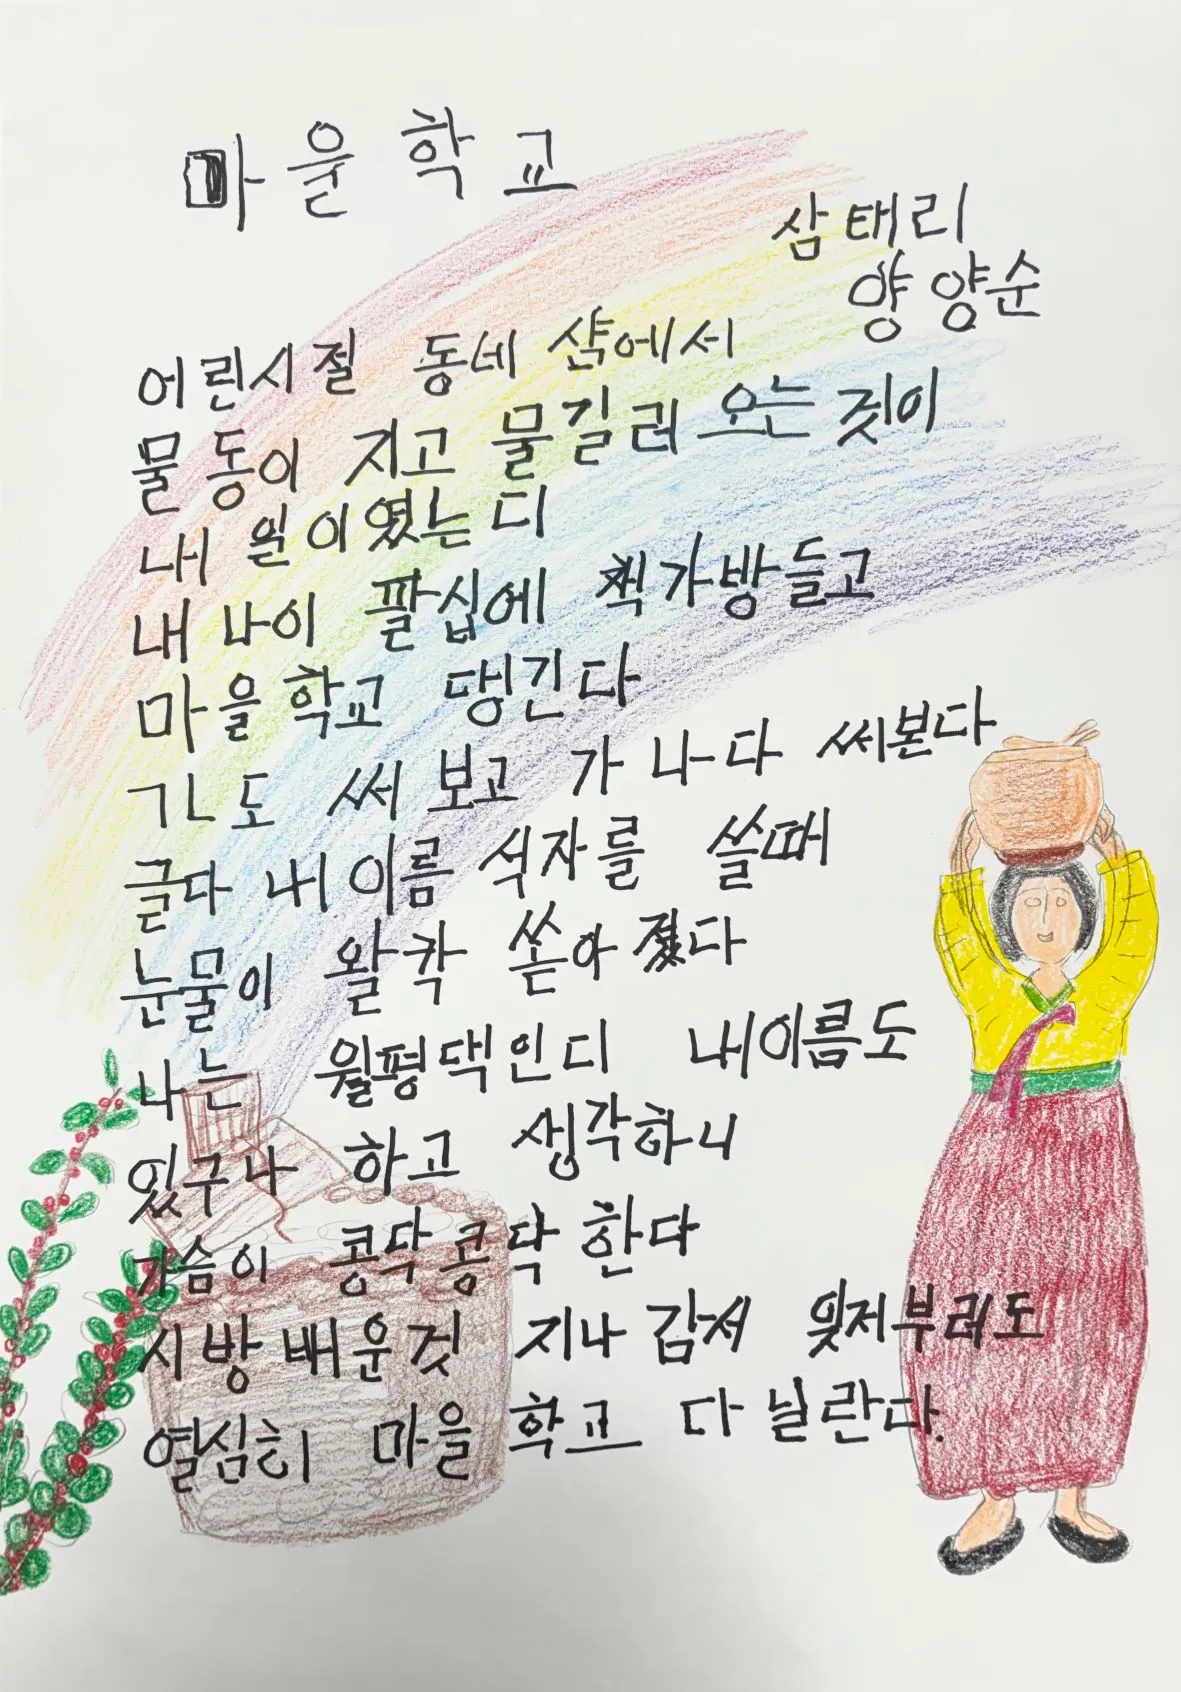 마을 학교
삼태리
양양순
어린시절 동네 샥에서
물동이 지고 물길러 오는 짓이
내 일이였는디
내 나이 팔십에 책가방들고
마을학교 댕긴다
ㄱㄴ도 써 보고 가나다 써본다
글다 내이름 석자를 쓸때
눈물이 왈칵 쏟아졌다
나는 월평댁인디 내이름도
있구나 하고 생각하니
가슴이 콩닥콩닥 한다
시방 배운것 지나감서 잊저부러도
열심히 마을 학교 다닐란다.